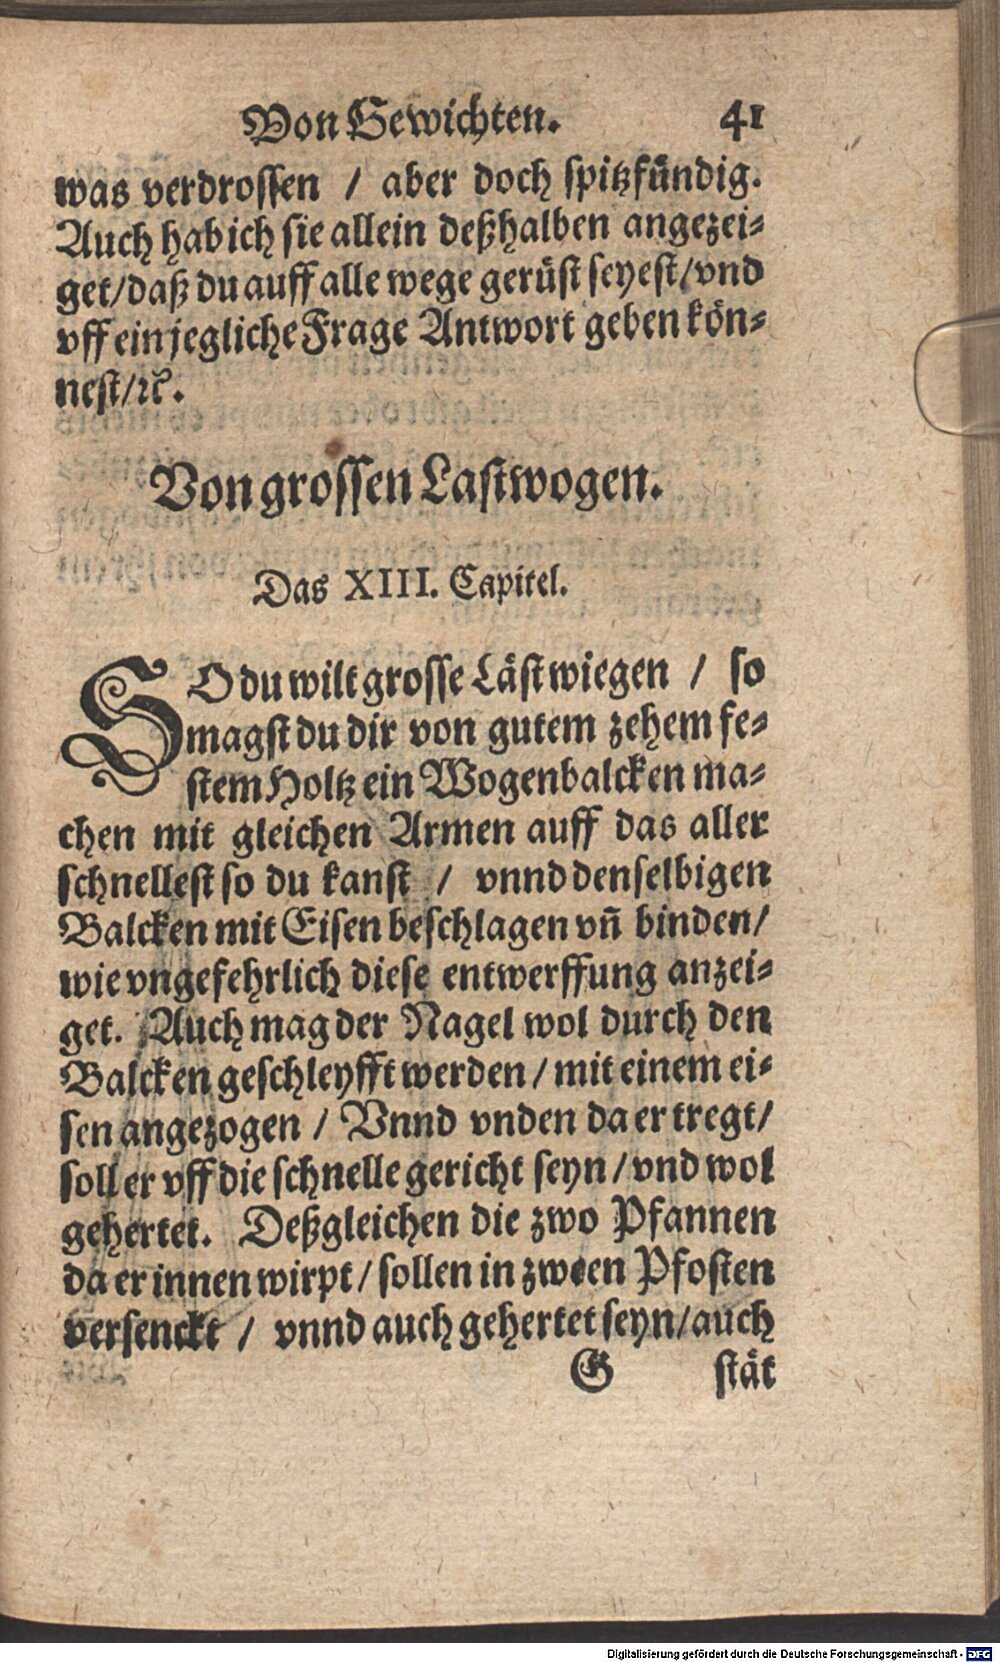 Von Gewichten. 41
was verdrossen / aber doch spitzfündig.
Auch hab ich sie allein deßhalben angezei-
get/daß du auff alle wege gerüst seyest/vnd
vff ein jegliche Frage Antwort geben kön-
nest/ꝛc.
Von grossen Lastwogen.
Das XIII. Capitel.
SO du wilt grosse Läst wiegen / so
magst du dir von gutem zehem fe-
stem Holtz ein Wogenbalcken ma-
chen mit gleichen Armen auff das aller
schnellest so du kanst / vnnd denselbigen
Balcken mit Eisen beschlagen vñ binden/
wie vngefehrlich diese entwerffung anzei-
get. Auch mag der Nagel wol durch den
Balcken geschleyfft werden / mit einem ei-
sen angezogen / Vnnd vnden da er tregt/
soll er vff die schnelle gericht seyn / vnd wol
gehertet. Deßgleichen die zwo Pfannen
da er innen wirpt / sollen in zween Pfosten
versenckt / vnnd auch gehertet seyn/auch
G stät
Digitalisierung gefördert durch die Deutsche Forschungsgemeinschaft - DFG